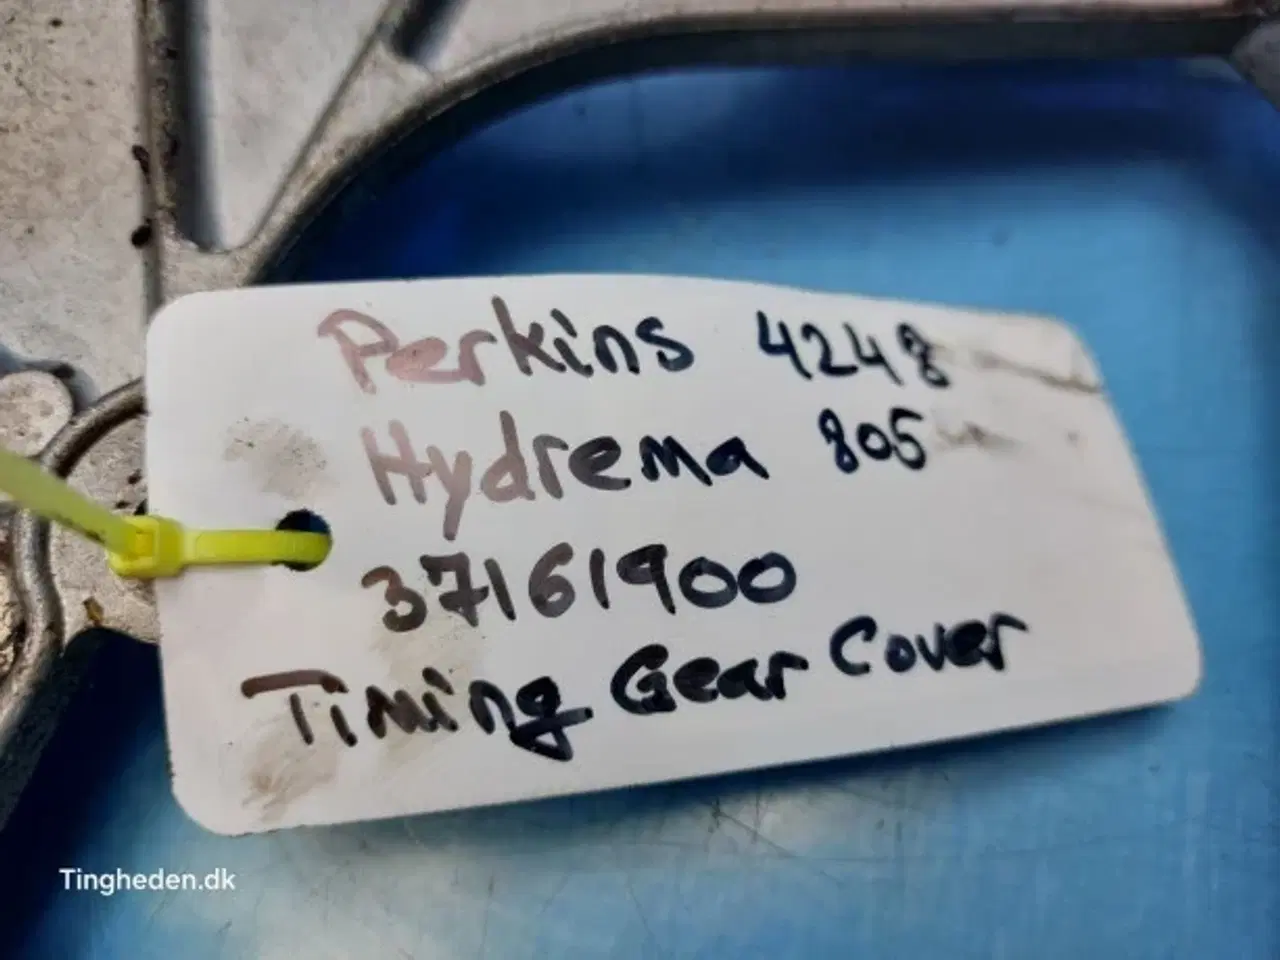 Perkins 4248
Hydrema 805
37161900
Timing Gear Cover
Tingheden.dk